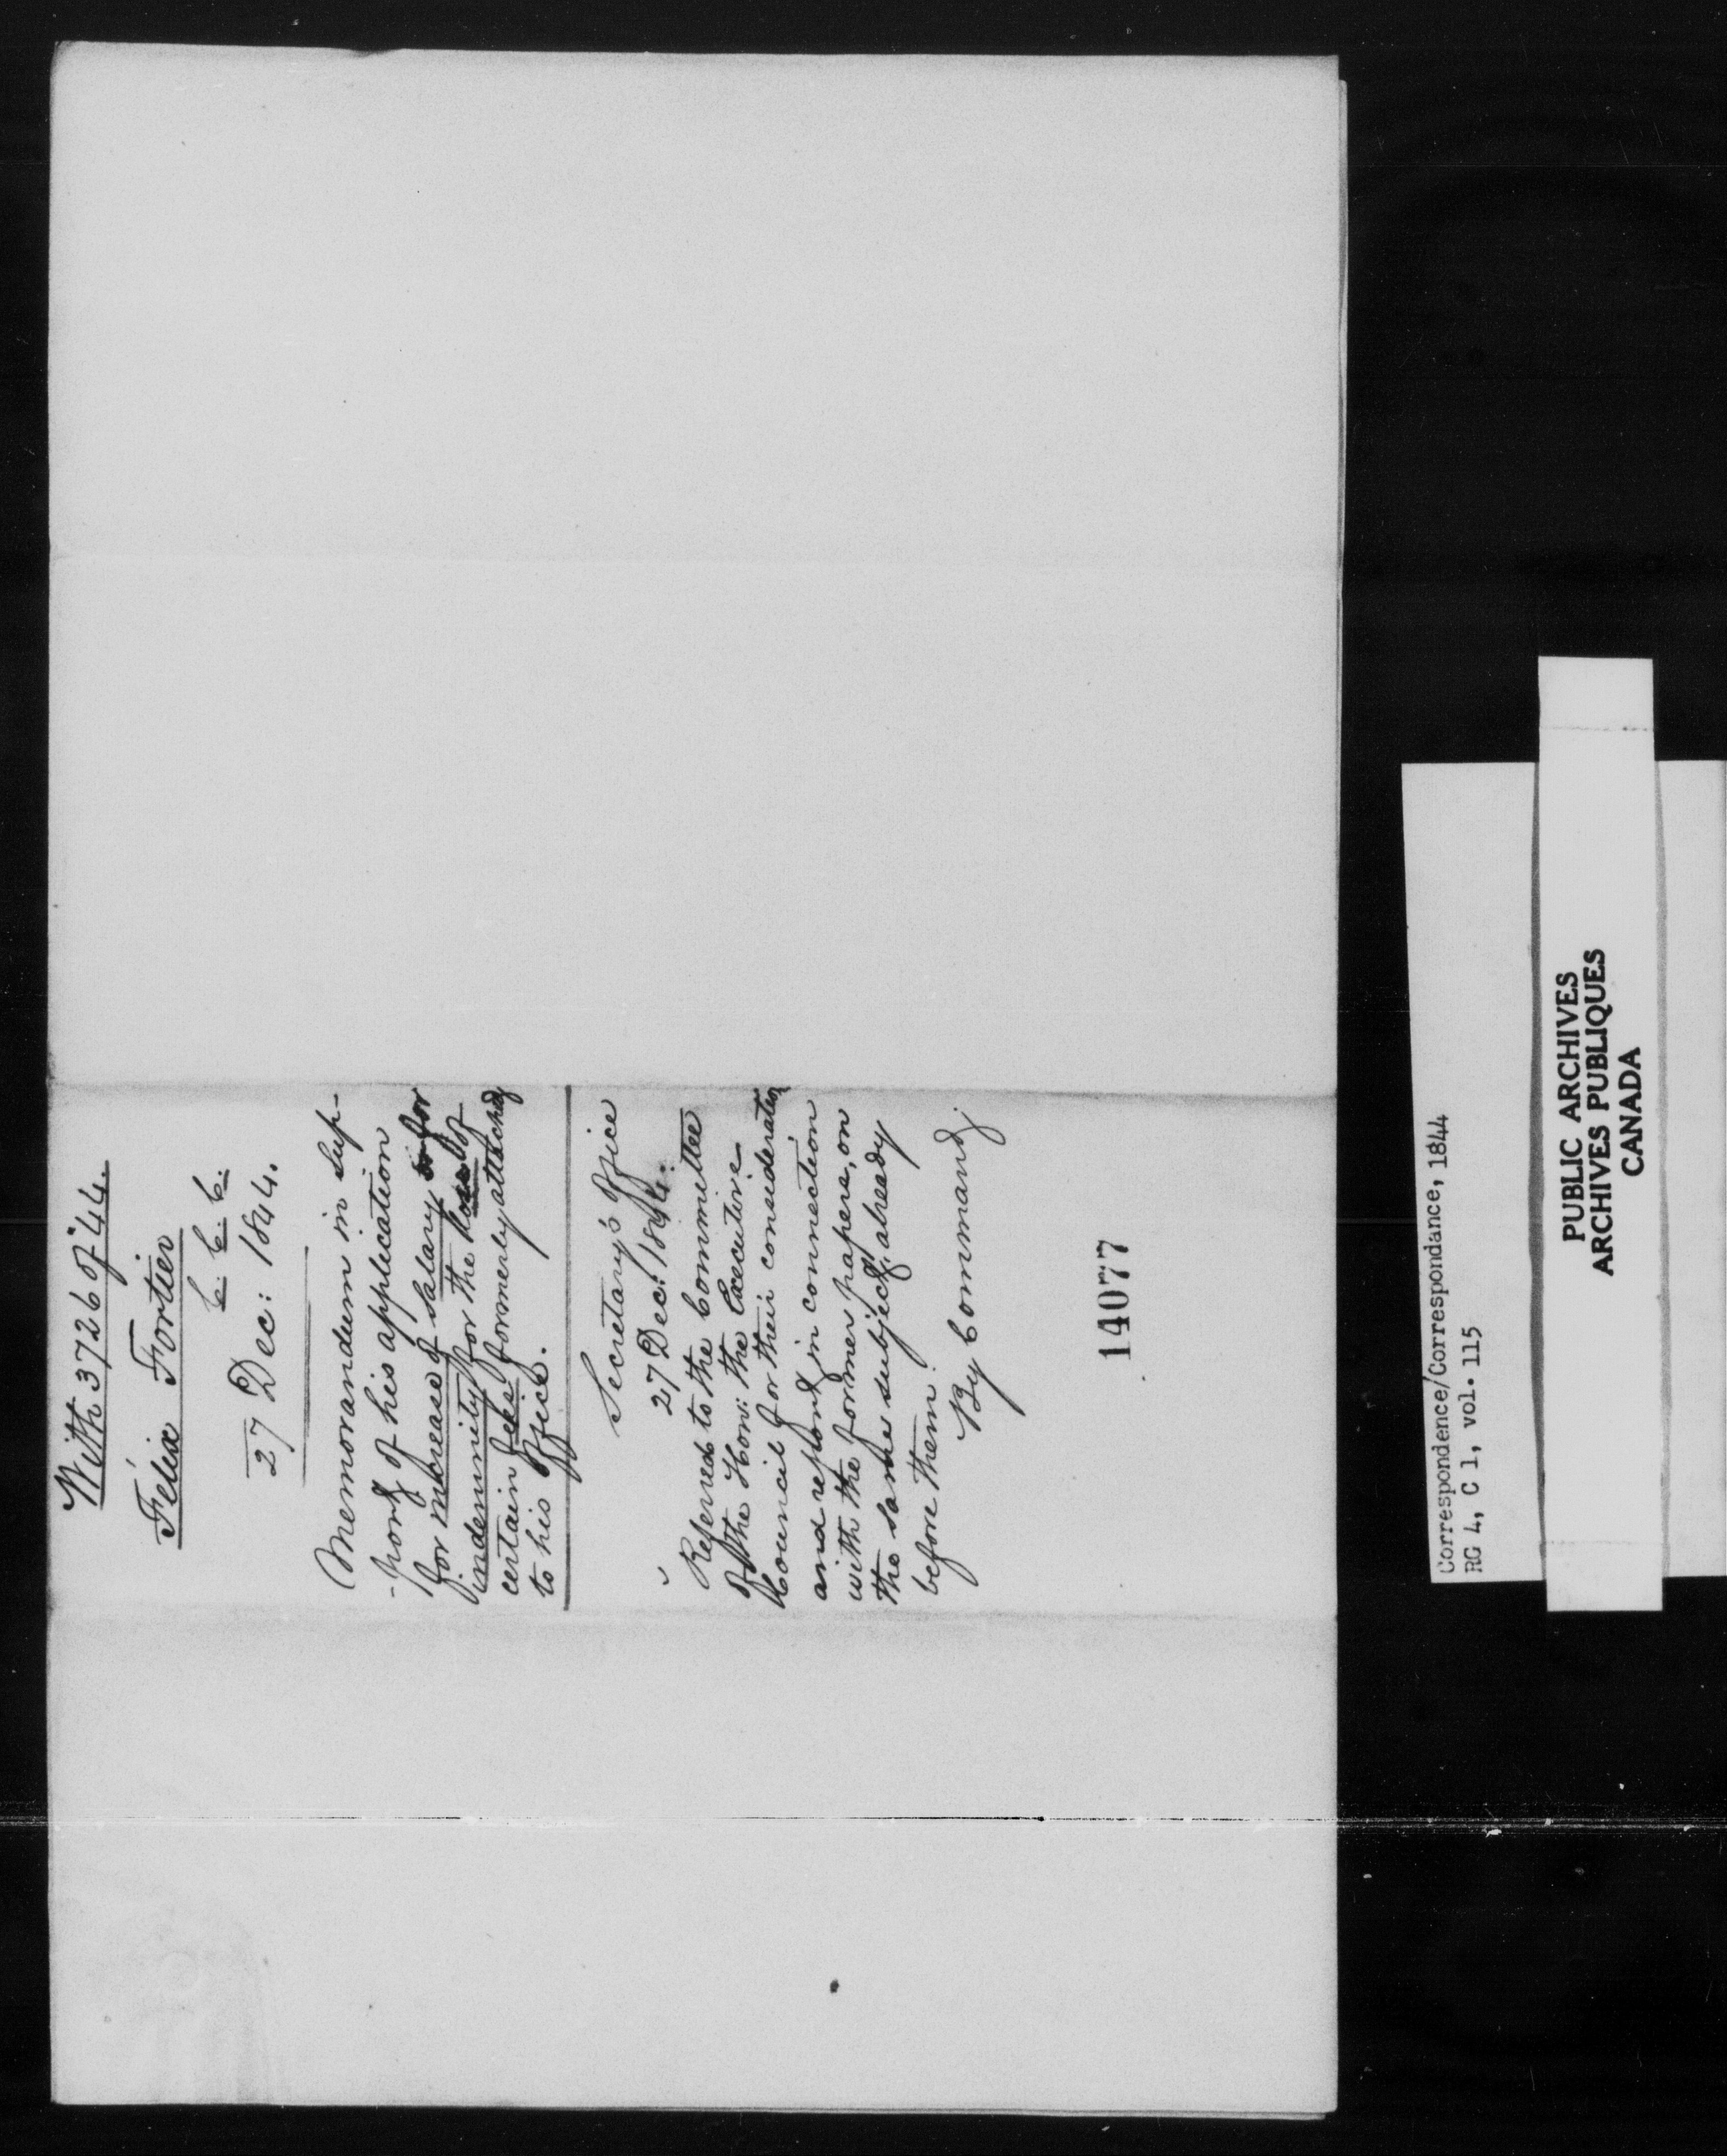 With 3726 of "44.
Félix Fortier
C. C. C.
27 Dec: 1844.
Memorandum in sup-
-port of his application
for increase of salary or for
indemnity for the loss of
certain fees formerly attached
to his Office.
Secretary's Office
27 Dec: 1844.
Referred to the Committee
of the Hon: the Executive
Council for their consideration
and report, in connection
with the former papers, on
the same subject, already
before them.
By Command,
14077
Correspondence/Correspondance, 1844
RG 4, C 1, vol. 115
PUBLIC ARCHIVES
ARCHIVES PUBLIQUES
CANADA